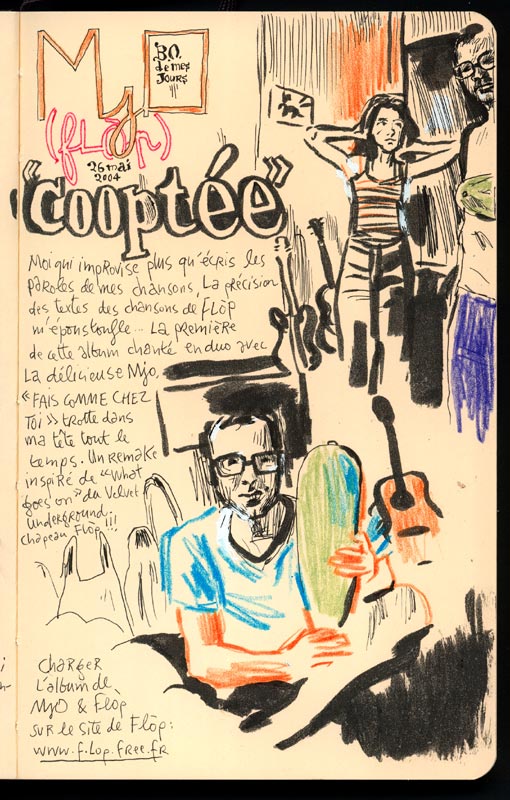 MyO
B.O.
de mes
Jours
(flòp)
26 mai
2004
"cooptée"
Moi qui improvise plus qu'écris les
paroles de mes chansons. La précision
des textes des chansons de flòp
m'époustoufle... La première
de cette album chanté en duo avec
La délicieuse Myo,
"FAIS COMME CHEZ
Toi" trotte dans
ma tête tout le
temps. Un remake
inspiré de "What
goes on" du Velvet
Underground.
chapeau Flòp !!!
CHARGER
L'album de
MyO & Flòp
sur le site de Flòp:
www.flop.free.fr